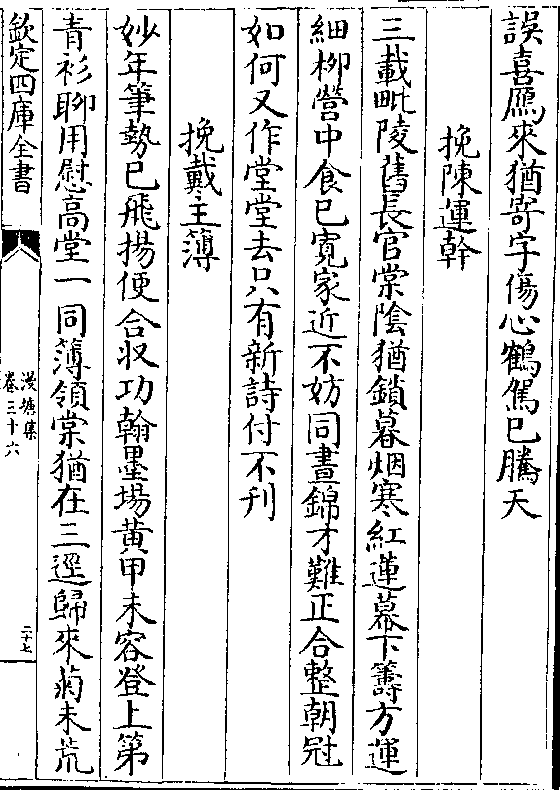 誤喜鴈來猶寄字傷心鶴馭已騰天
挽陳運幹
三載毗陵舊長官棠陰猶鎖暮烟寒紅蓮幕下籌方運
細栁營中食已寛家近不妨同晝錦才難正合整朝冠
如何又作堂堂去只有新詩付不刋
挽戴主簿
妙年筆勢已飛揚便合收功翰墨場黄甲未容登上第
青衫聊用慰高堂一同薄領棠猶在三逕歸來菊未荒
欽定四庫全書
漫塘集
卷三十六
二十七